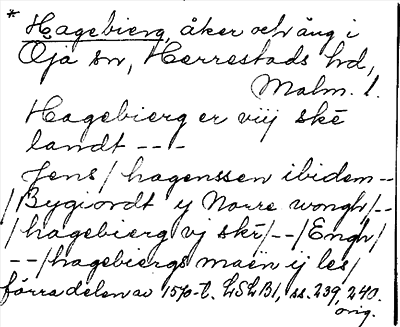 * Hagebierg, åker och äng i
Öja sn, Herrestads hd,
Malm. l.
Hagebierg er viij ske
landt - - -
Jens / hagenssen ibidem --
/ Bygiordt ij Norre wongh / --
/ hagebierg vj skr / -- / Engh /
-- / hagebiergs maen ij les /
förra delen av 1570-t. LSLB1, ss. 239, 240.
orig.